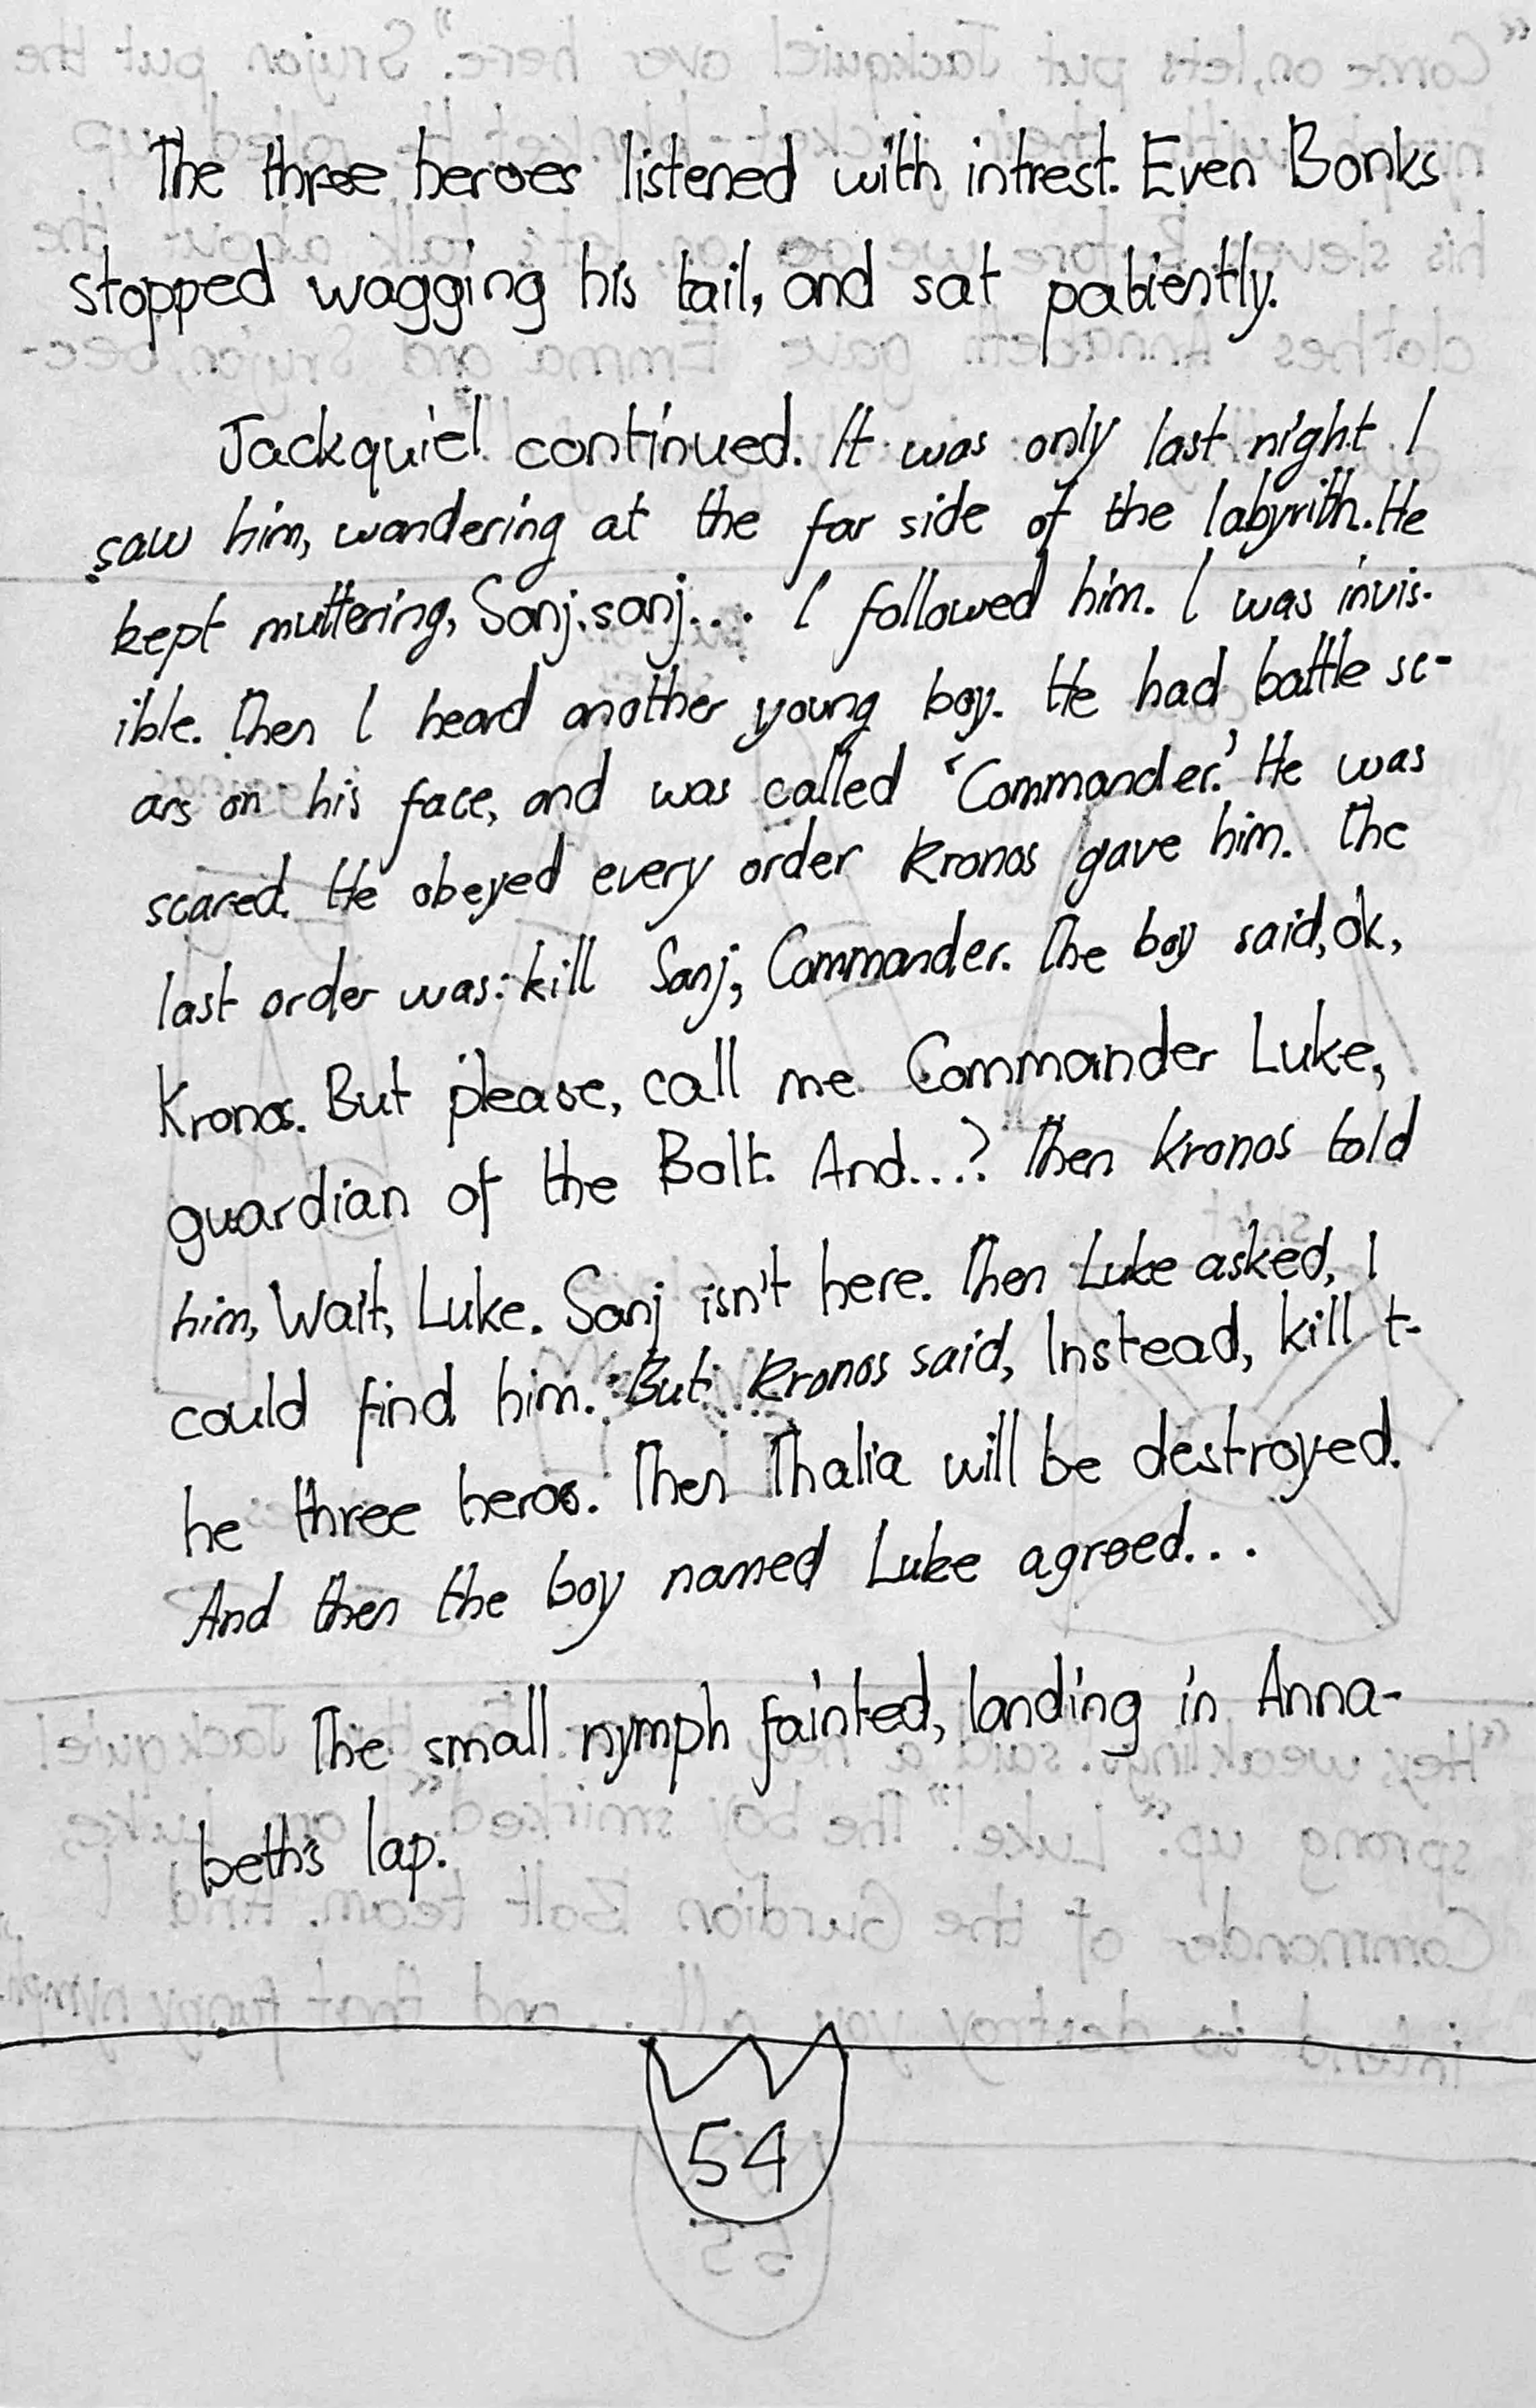 The three heroes listened with intrest. Even Bonks
stopped wagging his tail, and sat patiently.
Jackquiel continued. It was only last night I
saw him, wandering at the far side of the labyrith. He
kept muttering, Sanj, sanj... I followed him. I was invis-
ible. Then I heard another young boy. He had battle sc-
ars on his face, and was called 'Commander.' He was
scared. He obeyed every order Kronos gave him. The
last order was: kill Sanj, Commander. The boy said, ok,
Kronos. But please, call me Commander Luke,
guardian of the Bolt. And...? Then Kronos told
him, Wait, Luke. Sanj isn't here. Then Luke asked, I
could find him. But Kronos said, Instead, kill t-
he three heros. Then Thalia will be destroyed.
And then the boy named Luke agreed...
The small nymph fainted, landing in Anna-
beth's lap.
54